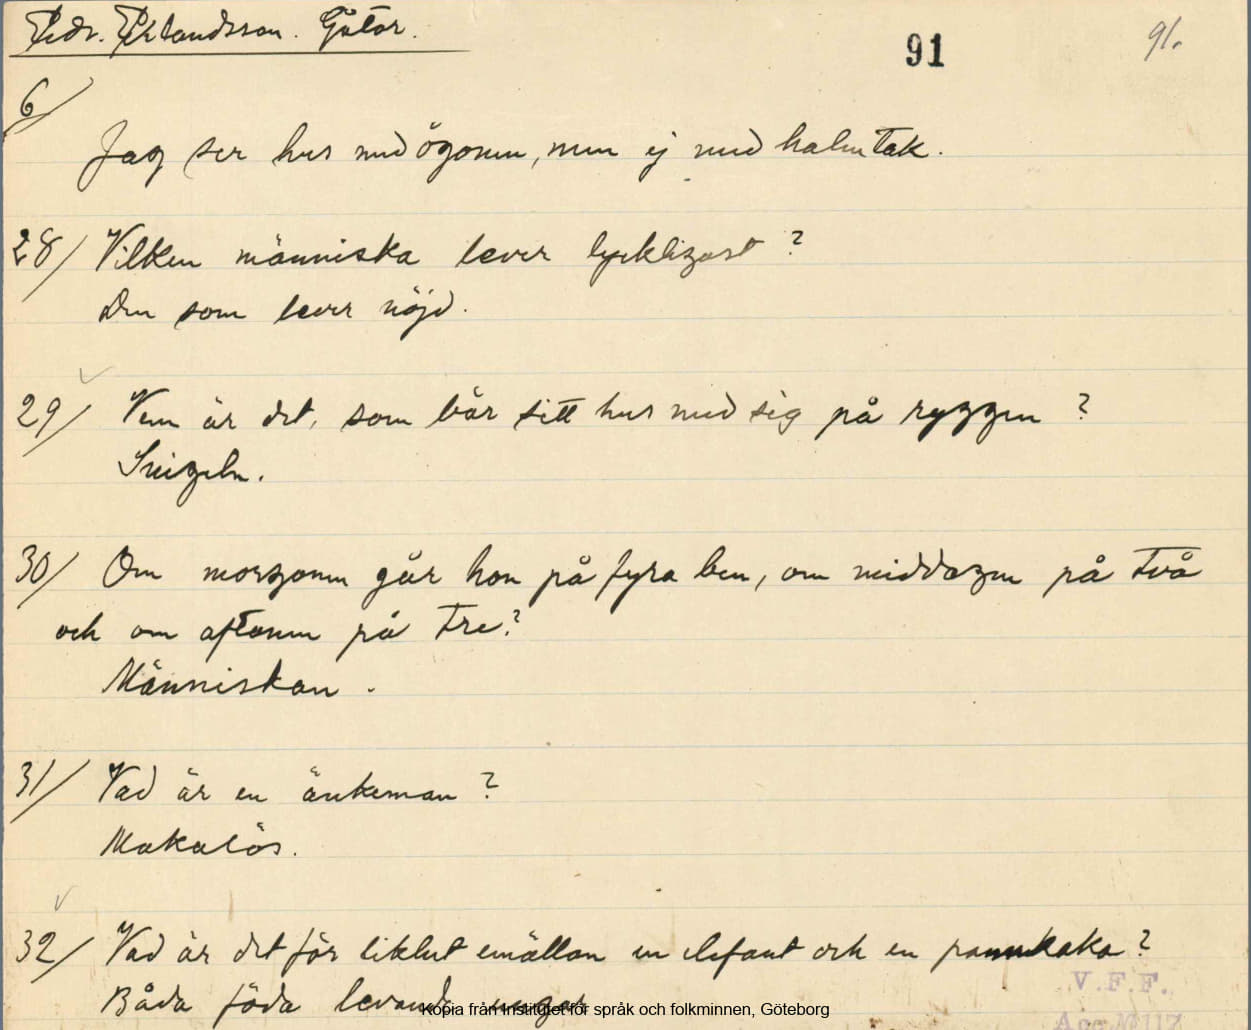 Edv. Erlandsson. Gåtor.
91
91.
6/
Jag ser hus med ögonen, men ej med halmtak.
28/ Vilken människa lever lyckligast?
Den som lever nöjd.
29/ Vem är det, som bär sitt hus med sig på ryggen?
Snigeln.
30/ Om morgonen går hon på fyra ben, om middagen på två
och om aftonen på tre?
Människan.
31/ Vad är en änkeman?
Makalös.
32/ Vad är det för likhet emällan en elefant och en pannkaka?
V.F.F.
Båda föda levande ungar
Kopia från Institutet för språk och folkminnen, Göteborg